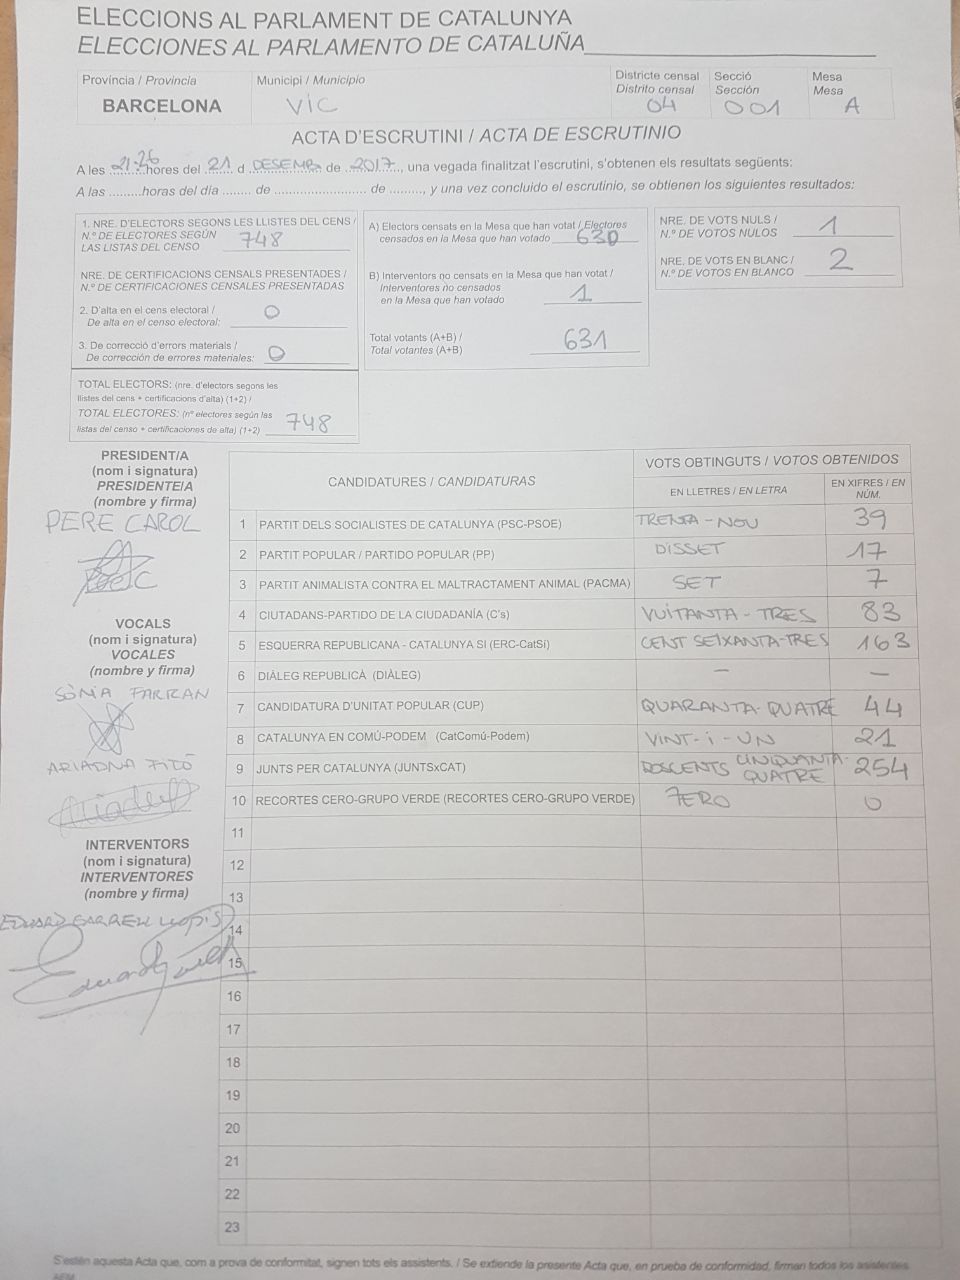 ELECCIONS AL PARLAMENT DE CATALUNYA
ELECCIONES AL PARLAMENTO DE CATALUÑA
Província / Provincia
BARCELONA
Municipi / Municipio
VIC
Districte censal
Distrito censal
04
Secció
Sección
001
Mesa
Mesa
A
ACTA D'ESCRUTINI / ACTA DE ESCRUTINIO
A les 21:26 hores del 21 d DESEMB. de 2017, una vegada finalitzat l'escrutini, s'obtenen els resultats següents:
A las .........horas del día ........ de ......................... de ........., y una vez concluido el escrutinio, se obtienen los siguientes resultados:
1. NRE. D'ELECTORS SEGONS LES LLISTES DEL CENS /
N.º DE ELECTORES SEGÚN
LAS LISTAS DEL CENSO 748
NRE. DE CERTIFICACIONS CENSALS PRESENTADES /
N.º DE CERTIFICACIONES CENSALES PRESENTADAS
2. D'alta en el cens electoral /
De alta en el censo electoral: 0
3. De correcció d'errors materials /
De corrección de errores materiales: 0
TOTAL ELECTORS: (nre. d'electors segons les
llistes del cens + certificacions d'alta) (1+2) /
TOTAL ELECTORES: (nº electores según las
listas del censo + certificaciones de alta) (1+2) 748
A) Electors censats en la Mesa que han votat / Electores
censados en la Mesa que han votado 630
B) Interventors no censats en la Mesa que han votat /
Interventores no censados
en la Mesa que han votado 1
Total votants (A+B) /
Total votantes (A+B) 631
NRE. DE VOTS NULS /
N.º DE VOTOS NULOS 1
NRE. DE VOTS EN BLANC /
N.º DE VOTOS EN BLANCO 2
PRESIDENT/A
(nom i signatura)
PRESIDENTE/A
(nombre y firma)
PERE CAROL
VOCALS
(nom i signatura)
VOCALES
(nombre y firma)
SÒNIA FARRAN
ARIADNA FITÓ
INTERVENTORS
(nom i signatura)
INTERVENTORES
(nombre y firma)
EDUARD
CANDIDATURES / CANDIDATURAS
VOTS OBTINGUTS / VOTOS OBTENIDOS
EN LLETRES / EN LETRA
EN XIFRES / EN
NÚM.
1 PARTIT DELS SOCIALISTES DE CATALUNYA (PSC-PSOE) TRENTA-NOU 39
2 PARTIT POPULAR / PARTIDO POPULAR (PP) DISSET 17
3 PARTIT ANIMALISTA CONTRA EL MALTRACTAMENT ANIMAL (PACMA) SET 7
4 CIUTADANS-PARTIDO DE LA CIUDADANÍA (C's) VUITANTA-TRES 83
5 ESQUERRA REPUBLICANA - CATALUNYA SI (ERC-CatSí) CENT SEIXANTA-TRES 163
6 DIÀLEG REPUBLICÀ (DIÀLEG) — —
7 CANDIDATURA D'UNITAT POPULAR (CUP) QUARANTA-QUATRE 44
8 CATALUNYA EN COMÚ-PODEM (CatComú-Podem) VINT-i-UN 21
9 JUNTS PER CATALUNYA (JUNTSxCAT) DOSCENTS CINQUANTA-QUATRE 254
10 RECORTES CERO-GRUPO VERDE (RECORTES CERO-GRUPO VERDE) ZERO 0
11
12
13
14
15
16
17
18
19
20
21
22
23
S'estén aquesta Acta que, com a prova de conformitat, signen tots els assistents. / Se extiende la presente Acta que, en prueba de conformidad, firman todos los asistentes.